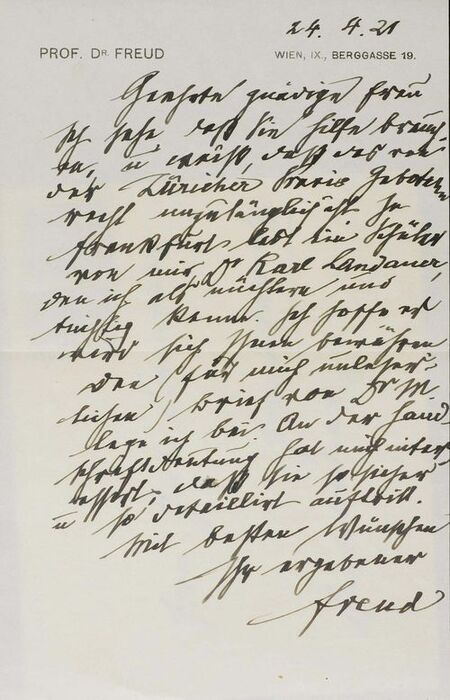 24. 4. 21
PROF. DR. FREUD
WIEN, IX., BERGGASSE 19.
Geehrte gnädige Frau
Ich sehe daß Sie Hilfe brauch-
ten, u weiß, daß das von
der Züricher Praxis Geboten
recht unzulänglich ist. In
Frankfurt lebt ein Schüler
von mir, Dr Karl Landauer,
den ich als nüchtern und
tüchtig kenne. Ich hoffe er
wird sich Ihnen bewähren
Den (für mich unleser-
lichen) Brief von Dr M.
lege ich bei. An der Hand
schriftdeutung hat mich inter
essirt, daß sie so sicher
u so detaillirt auftritt.
Mit besten Wünschen
Ihr ergebener
Freud